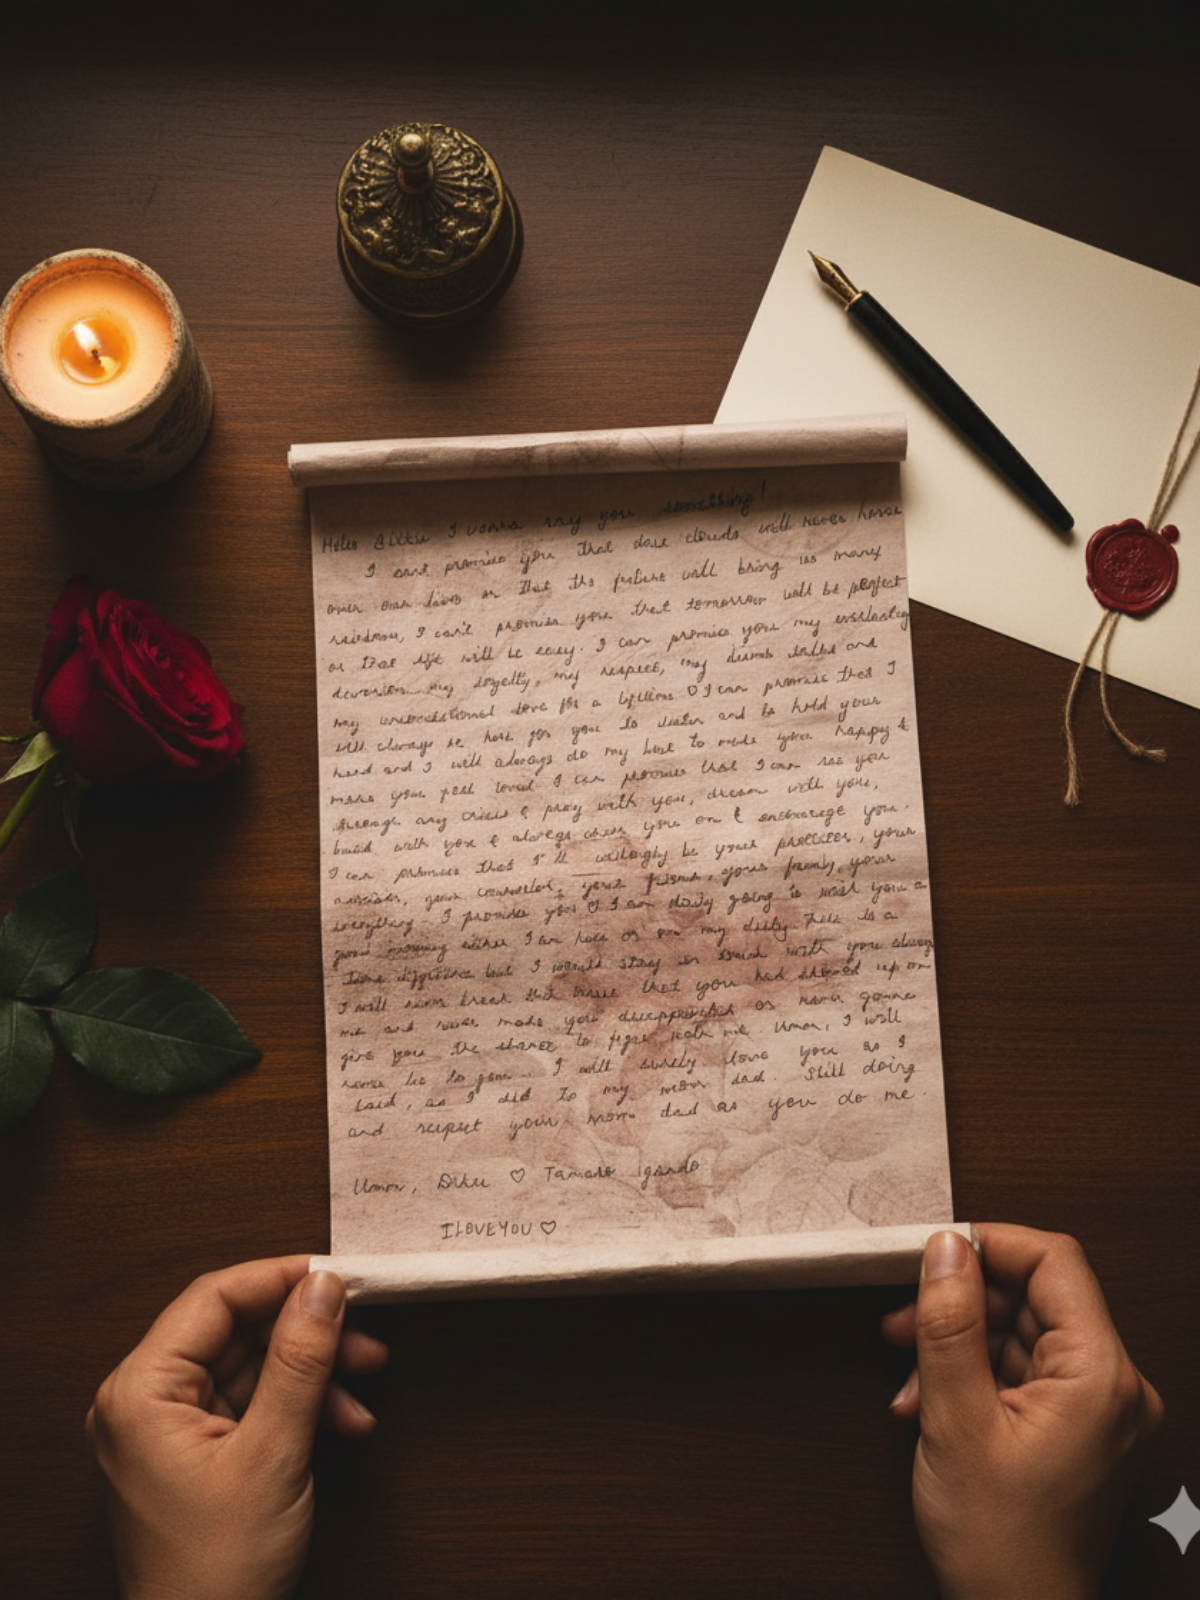 Hello I wanna say you something!
I can't promise you that dark clouds will never hover
over our lives or that the future will bring us many
rainbow, I can't promise you that tomorrow will be perfect
or that life will be easy. I can promise you my everlasting
devotion my loyalty, my respect, my and
my unconditional love for a lifetime ♡ I can promise that I
will always be here for you to listen and to hold your
hand and I will always do my best to make you happy &
make you feel loved I can promise that I can see you
through any crisis & pray with you, dream with you,
build with you & always cheer you on & encourage you.
I can promise that I'll willingly be your protector, your
advisor, your counselor, your friend, your family, your
everything. I promise you ♡ I am daily going to wish you a
good morning either I am here or on my duty there is a
time difference but I would stay in touch with you always
I will never break that that you had showed up on
me and never make you or never gonna
give you the chance to fight with me. Umm, I will
to you. I will surely love you as I
said, as I did to my mom dad. Still doing
and respect your mom dad as you do me.
Umm, ♡
I LOVE YOU ♡